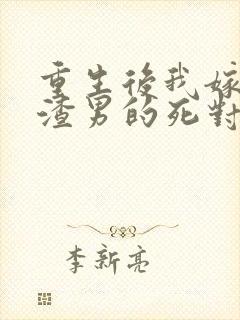 重生後我嫁
渣男的死對
李新亮